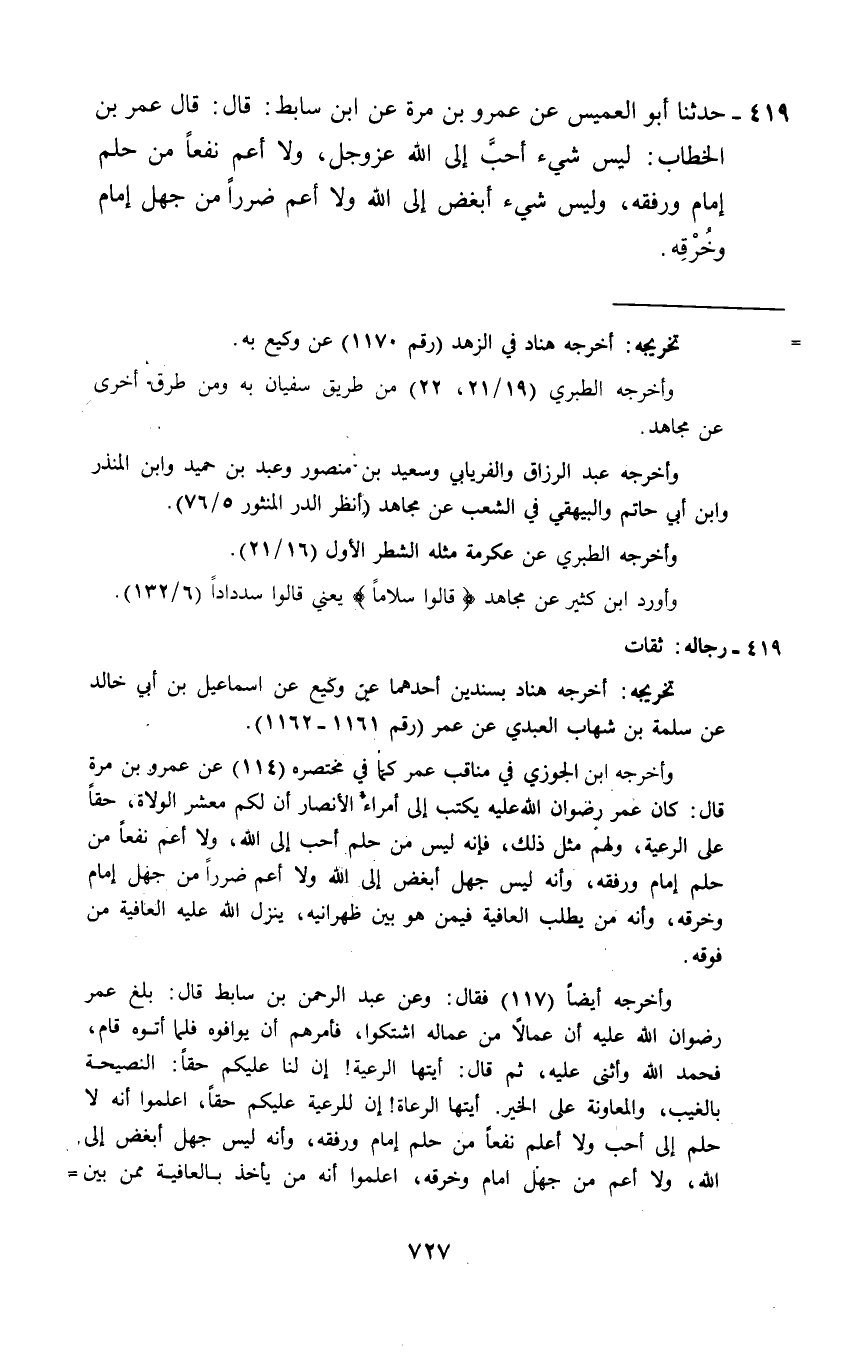 ٤١٩ ـ حدثنا أبو العميس عن عمرو بن مرة عن ابن سابط: قال: قال عمر بن
الخطاب: ليس شيء أحبَّ إلى الله عزوجل، ولا أعم نفعاً من حلم
إمام ورفقه، وليس شيء أبغض إلى الله ولا أعم ضرراً من جهل إمام
وخُرْقِه.
= تخريجه: أخرجه هناد في الزهد (رقم ١١٧٠) عن وكيع به.
وأخرجه الطبري (٢١/١٩، ٢٢) من طريق سفيان به ومن طرق أخرى
عن مجاهد.
وأخرجه عبد الرزاق والفريابي وسعيد بن منصور وعبد بن حميد وابن المنذر
وابن أبي حاتم والبيهقي في الشعب عن مجاهد (أنظر الدر المنثور ٧٦/٥).
وأخرجه الطبري عن عكرمة مثله الشطر الأول (٢١/١٦).
وأورد ابن كثير عن مجاهد ﴿ قالوا سلاماً ﴾ يعني قالوا سدداداً (١٣٢/٦).
٤١٩ ـ رجاله: ثقات
تخريجه: أخرجه هناد بسندين أحدهما عن وكيع عن اسماعيل بن أبي خالد
عن سلمة بن شهاب العبدي عن عمر (رقم ١١٦١ ـ ١١٦٢).
وأخرجه ابن الجوزي في مناقب عمر كما في مختصره (١١٤) عن عمرو بن مرة
قال: كان عمر رضوان الله عليه يكتب إلى أمراء الأنصار أن لكم معشر الولاة، حقاً
على الرعية، ولهم مثل ذلك، فإنه ليس من حلم أحب إلى الله، ولا أعم نفعاً من
حلم إمام ورفقه، وأنه ليس جهل أبغض إلى الله ولا أعم ضرراً من جهل إمام
وخرقه، وأنه من يطلب العافية فيمن هو بين ظهرانيه، ينزل الله عليه العافية من
فوقه.
وأخرجه أيضاً (١١٧) فقال: وعن عبد الرحمن بن سابط قال: بلغ عمر
رضوان الله عليه أن عمالًا من عماله اشتكوا، فأمرهم أن يوافوه فلما أتوه قام،
فحمد الله وأثنى عليه، ثم قال: أيتها الرعية! إن لنا عليكم حقاً: النصيحة
بالغيب، والمعاونة على الخير. أيتها الرعاة! إن للرعية عليكم حقاً، اعلموا أنه لا
حلم إلى أحب ولا أعلم نفعاً من حلم إمام ورفقه، وأنه ليس جهل أبغض إلى
الله، ولا أعم من جهل امام وخرقه، اعلموا أنه من يأخذ بالعافية ممن بين =
٧٢٧